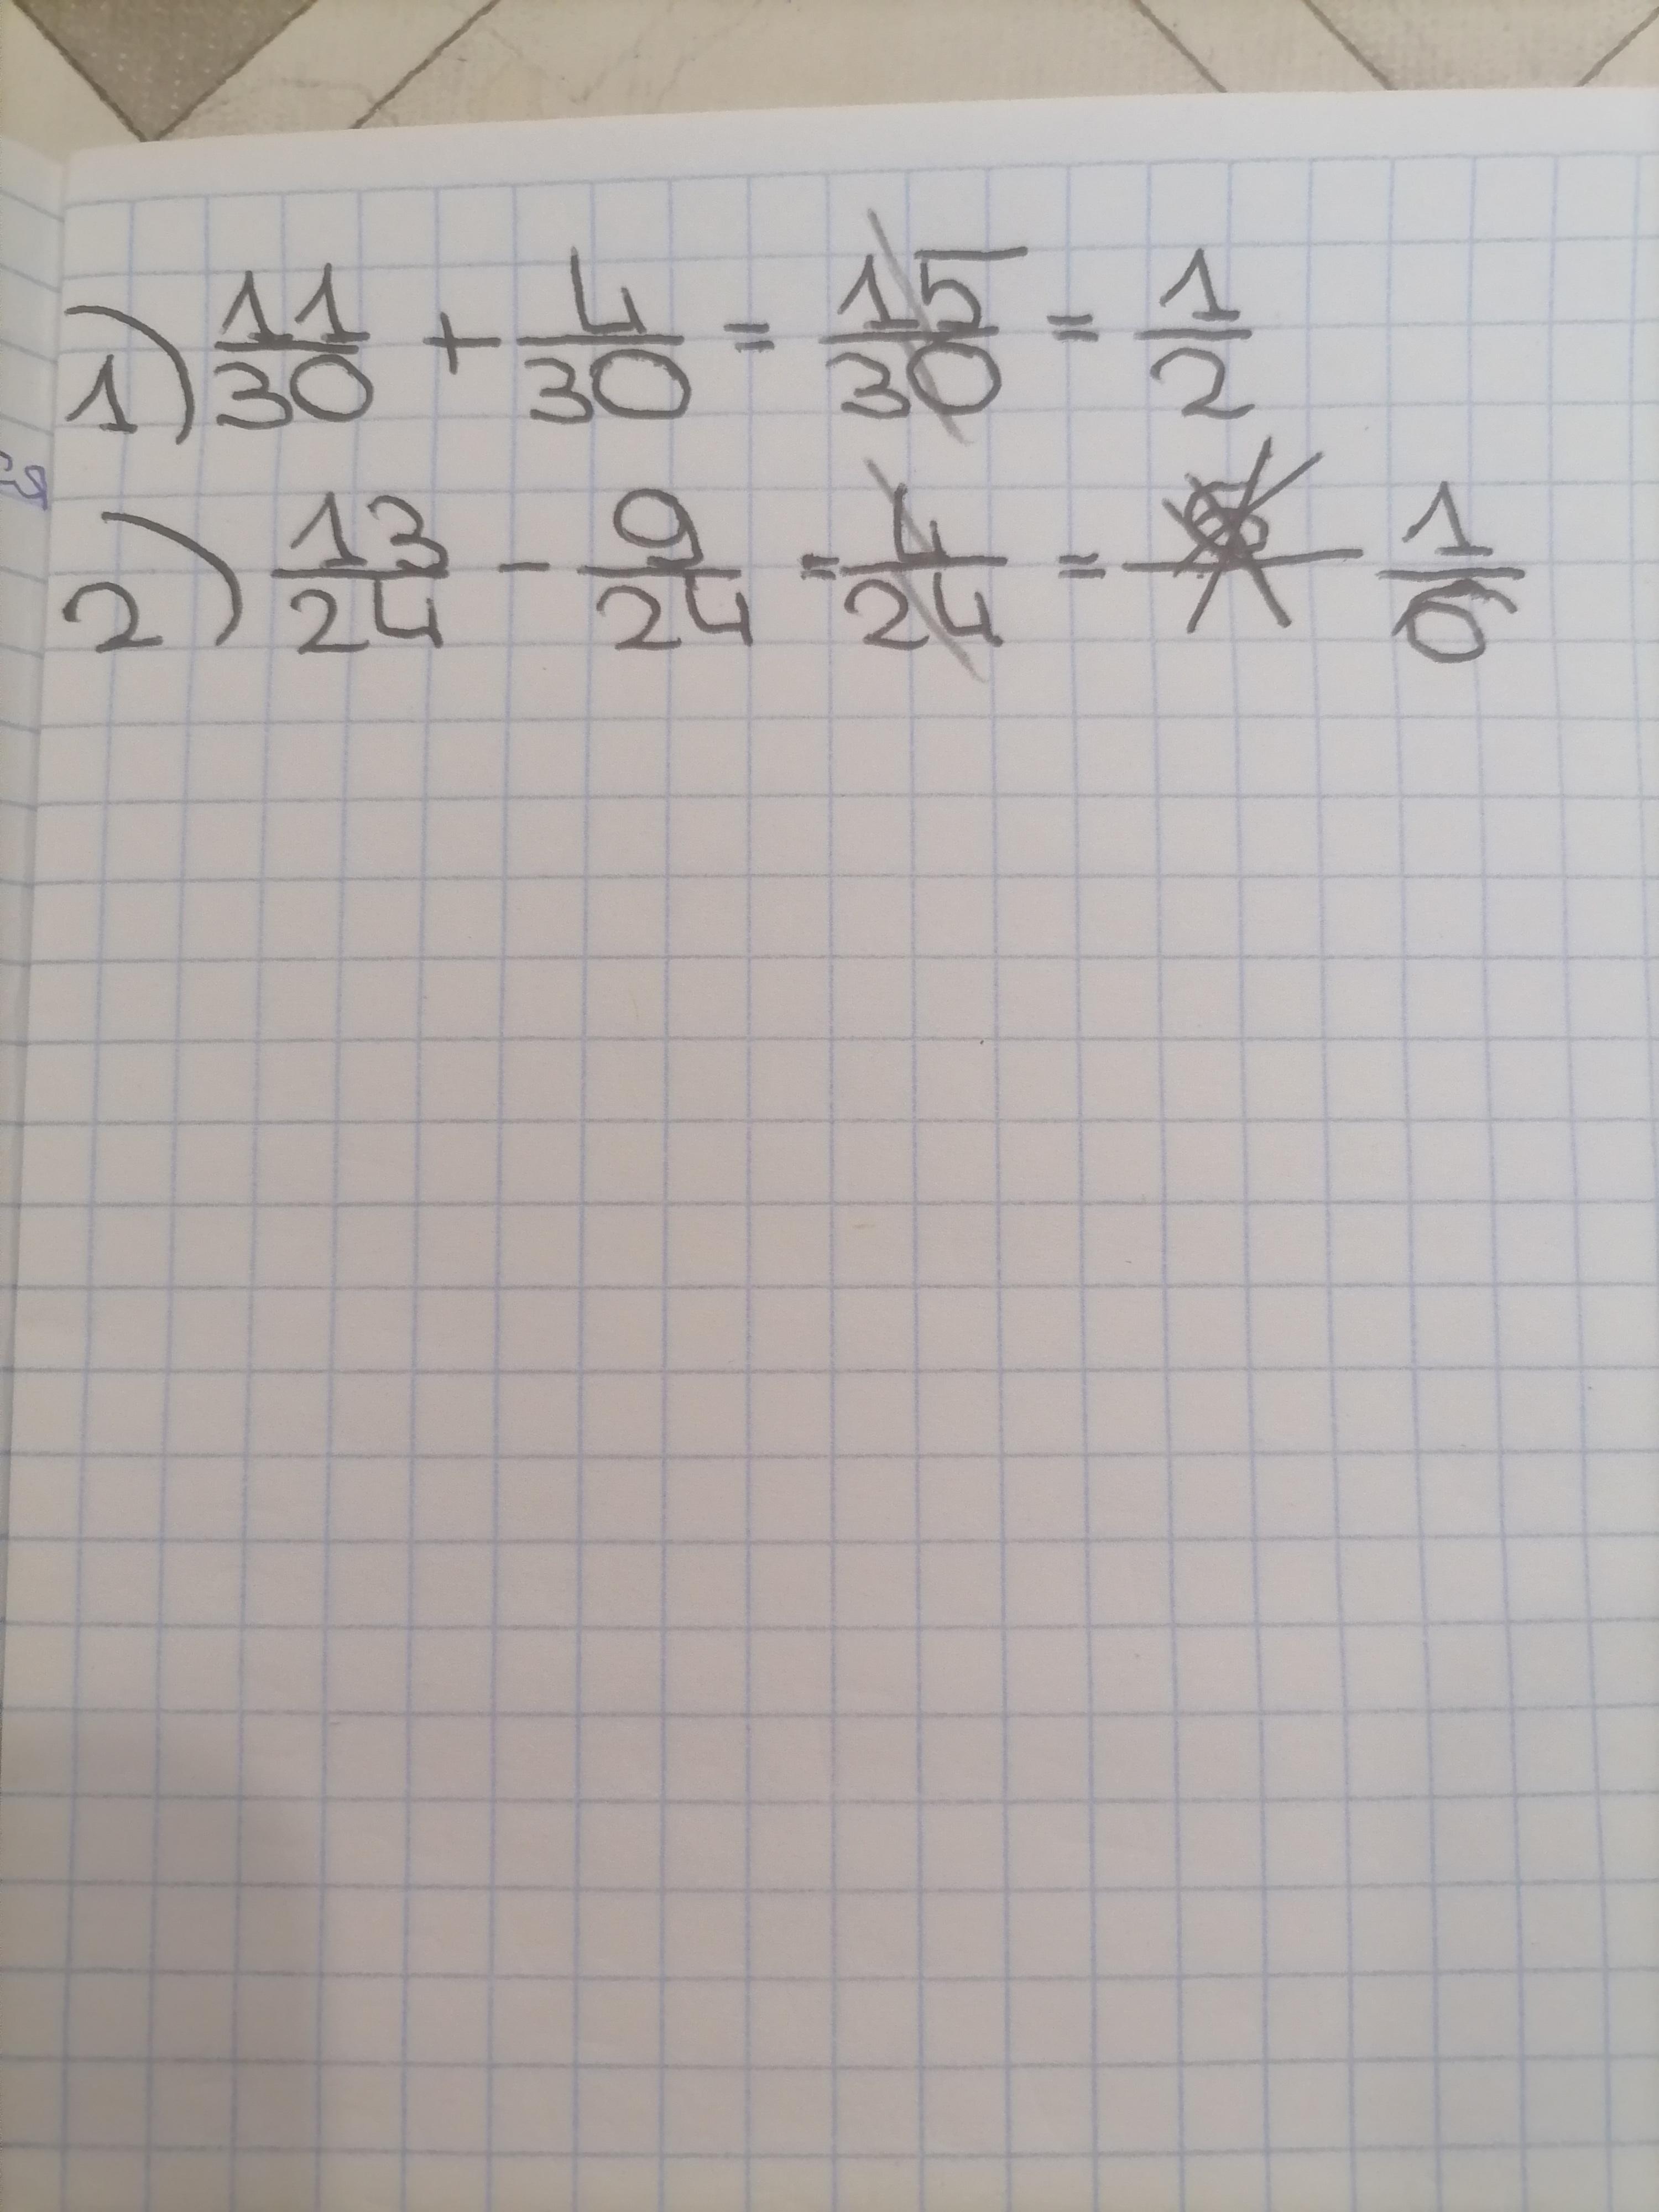 1) 11/30 + 4/30 = 15/30 = 1/2
2) 13/24 - 9/24 = 4/24 = 1/6